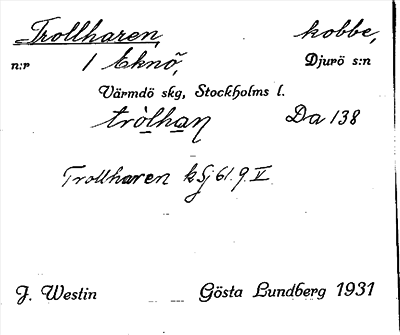 Trollharen, kobbe,
n:r 1 Eknö, Djurö s:n
Värmdö skg, Stockholms l.
tròlhan Da 138
Trollharen k Sj 61. 9. V.
J. Westin Gösta Lundberg 1931